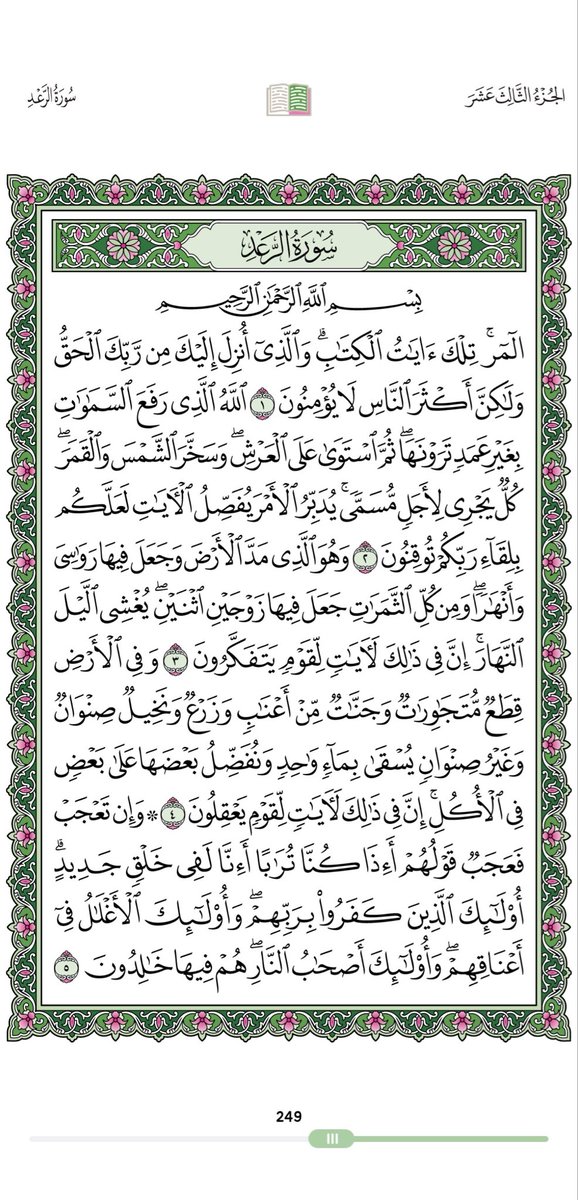 الجُزْءُ الثَّالِثَ عَشَرَ
سُورَةُ الرَّعْدِ
سُورَةُ الرَّعْدِ
بِسْمِ ٱللَّهِ ٱلرَّحْمَٰنِ ٱلرَّحِيمِ
الٓمٓرۚ تِلْكَ ءَايَٰتُ ٱلْكِتَٰبِۗ وَٱلَّذِىٓ أُنزِلَ إِلَيْكَ مِن رَّبِّكَ ٱلْحَقُّ
وَلَٰكِنَّ أَكْثَرَ ٱلنَّاسِ لَا يُؤْمِنُونَ ١ ٱللَّهُ ٱلَّذِى رَفَعَ ٱلسَّمَٰوَٰتِ
بِغَيْرِ عَمَدٍ تَرَوْنَهَاۖ ثُمَّ ٱسْتَوَىٰ عَلَى ٱلْعَرْشِۖ وَسَخَّرَ ٱلشَّمْسَ وَٱلْقَمَرَۖ
كُلٌّ يَجْرِى لِأَجَلٍ مُّسَمًّىۚ يُدَبِّرُ ٱلْأَمْرَ يُفَصِّلُ ٱلْءَايَٰتِ لَعَلَّكُم
بِلِقَآءِ رَبِّكُمْ تُوقِنُونَ ٢ وَهُوَ ٱلَّذِى مَدَّ ٱلْأَرْضَ وَجَعَلَ فِيهَا رَوَٰسِىَ
وَأَنْهَٰرًاۖ وَمِن كُلِّ ٱلثَّمَرَٰتِ جَعَلَ فِيهَا زَوْجَيْنِ ٱثْنَيْنِۖ يُغْشِى ٱلَّيْلَ
ٱلنَّهَارَۚ إِنَّ فِى ذَٰلِكَ لَءَايَٰتٍ لِّقَوْمٍ يَتَفَكَّرُونَ ٣ وَفِى ٱلْأَرْضِ
قِطَعٌ مُّتَجَٰوِرَٰتٌ وَجَنَّٰتٌ مِّنْ أَعْنَٰبٍ وَزَرْعٌ وَنَخِيلٌ صِنْوَانٌ
وَغَيْرُ صِنْوَانٍ يُسْقَىٰ بِمَآءٍ وَٰحِدٍ وَنُفَضِّلُ بَعْضَهَا عَلَىٰ بَعْضٍ
فِى ٱلْأُكُلِۚ إِنَّ فِى ذَٰلِكَ لَءَايَٰتٍ لِّقَوْمٍ يَعْقِلُونَ ٤ ۞ وَإِن تَعْجَبْ
فَعَجَبٌ قَوْلُهُمْ أَءِذَا كُنَّا تُرَٰبًا أَءِنَّا لَفِى خَلْقٍ جَدِيدٍۗ
أُو۟لَٰٓئِكَ ٱلَّذِينَ كَفَرُوا۟ بِرَبِّهِمْۖ وَأُو۟لَٰٓئِكَ ٱلْأَغْلَٰلُ فِىٓ
أَعْنَاقِهِمْۖ وَأُو۟لَٰٓئِكَ أَصْحَٰبُ ٱلنَّارِۖ هُمْ فِيهَا خَٰلِدُونَ ٥
249